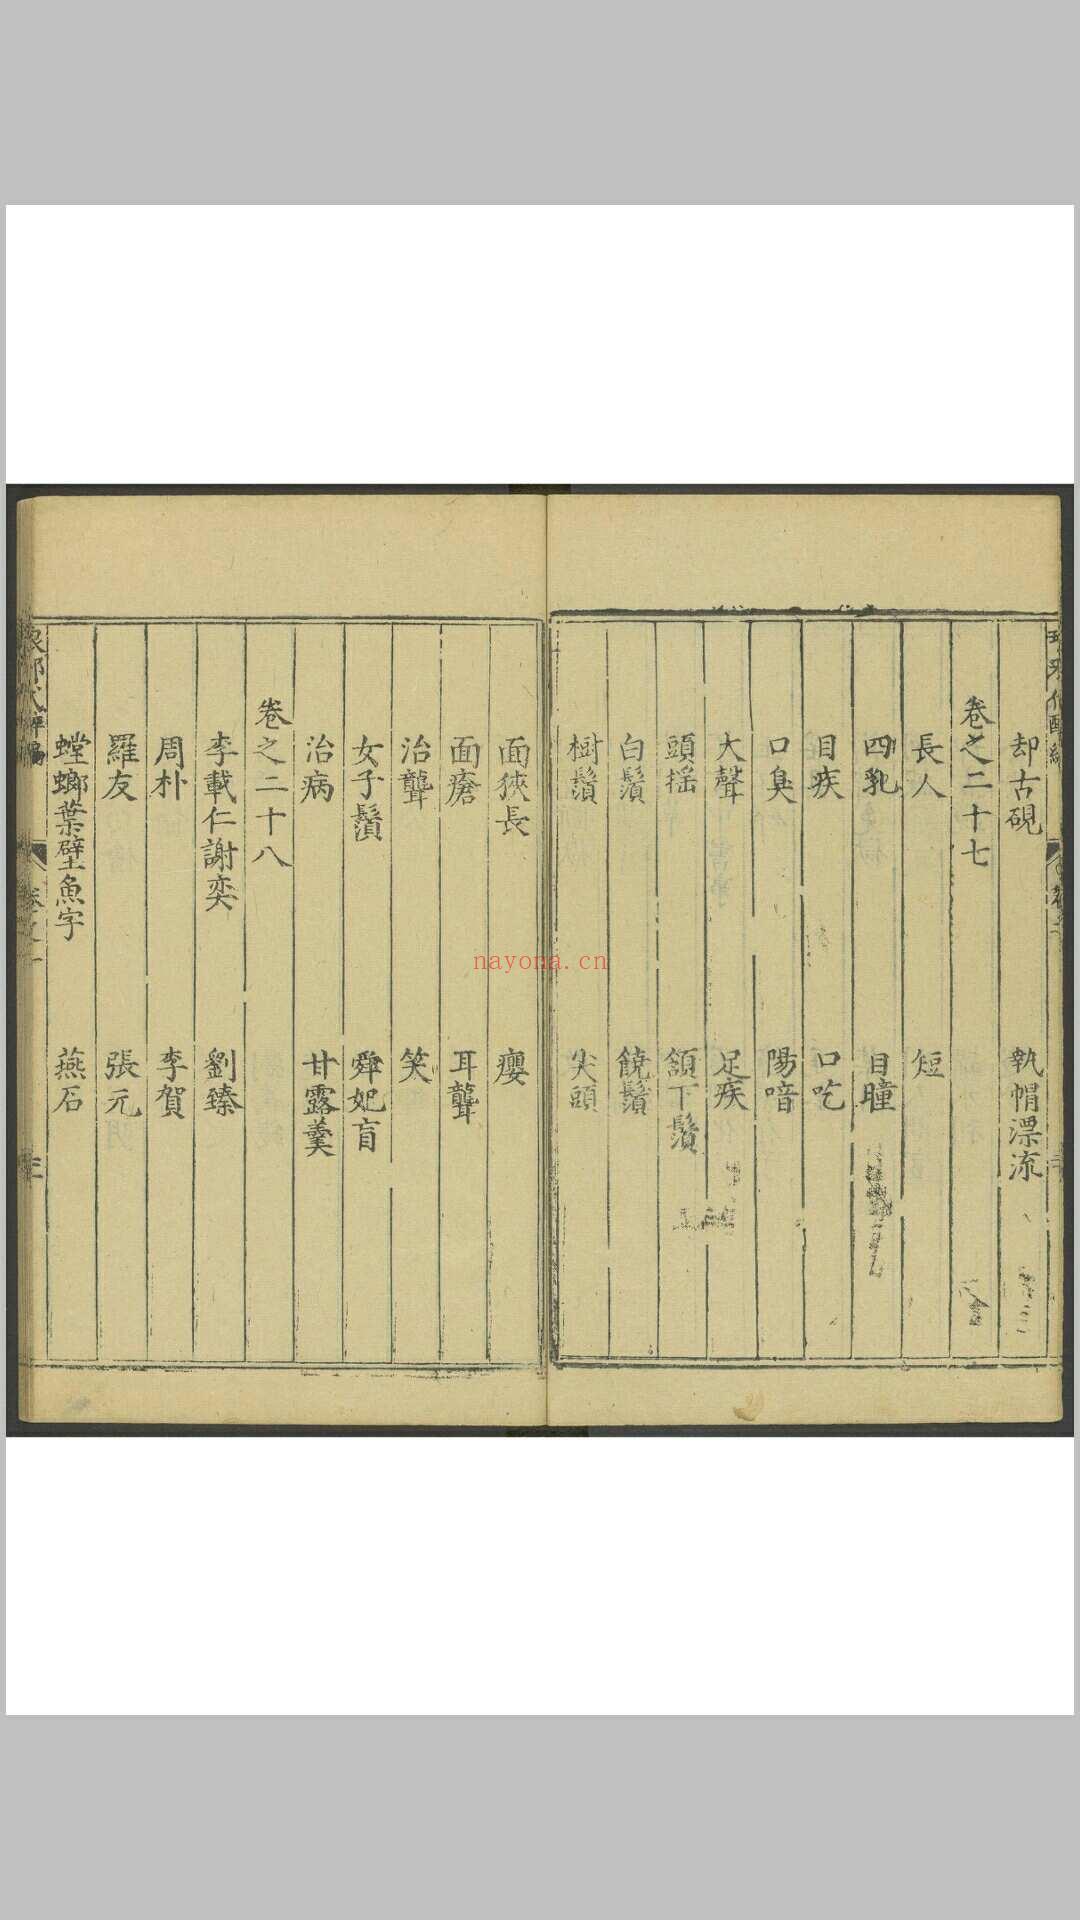 却古硯　執帽漂流
卷之二十七
長人　短
四乳　目瞳
目疾　口吃
口臭　陽喑
大聲　足疾
頭摇　頷下鬚
白鬚　饒鬚
樹鬚　尖頭
面狹長　癭
面瘡　耳聾
治聾　笑
女子鬚　舜妃盲
治病　甘露羹
卷之二十八
李載仁謝奕　劉臻
周朴　李賀
羅友　張元
螳螂葉壁魚字　燕石
nayona.cn